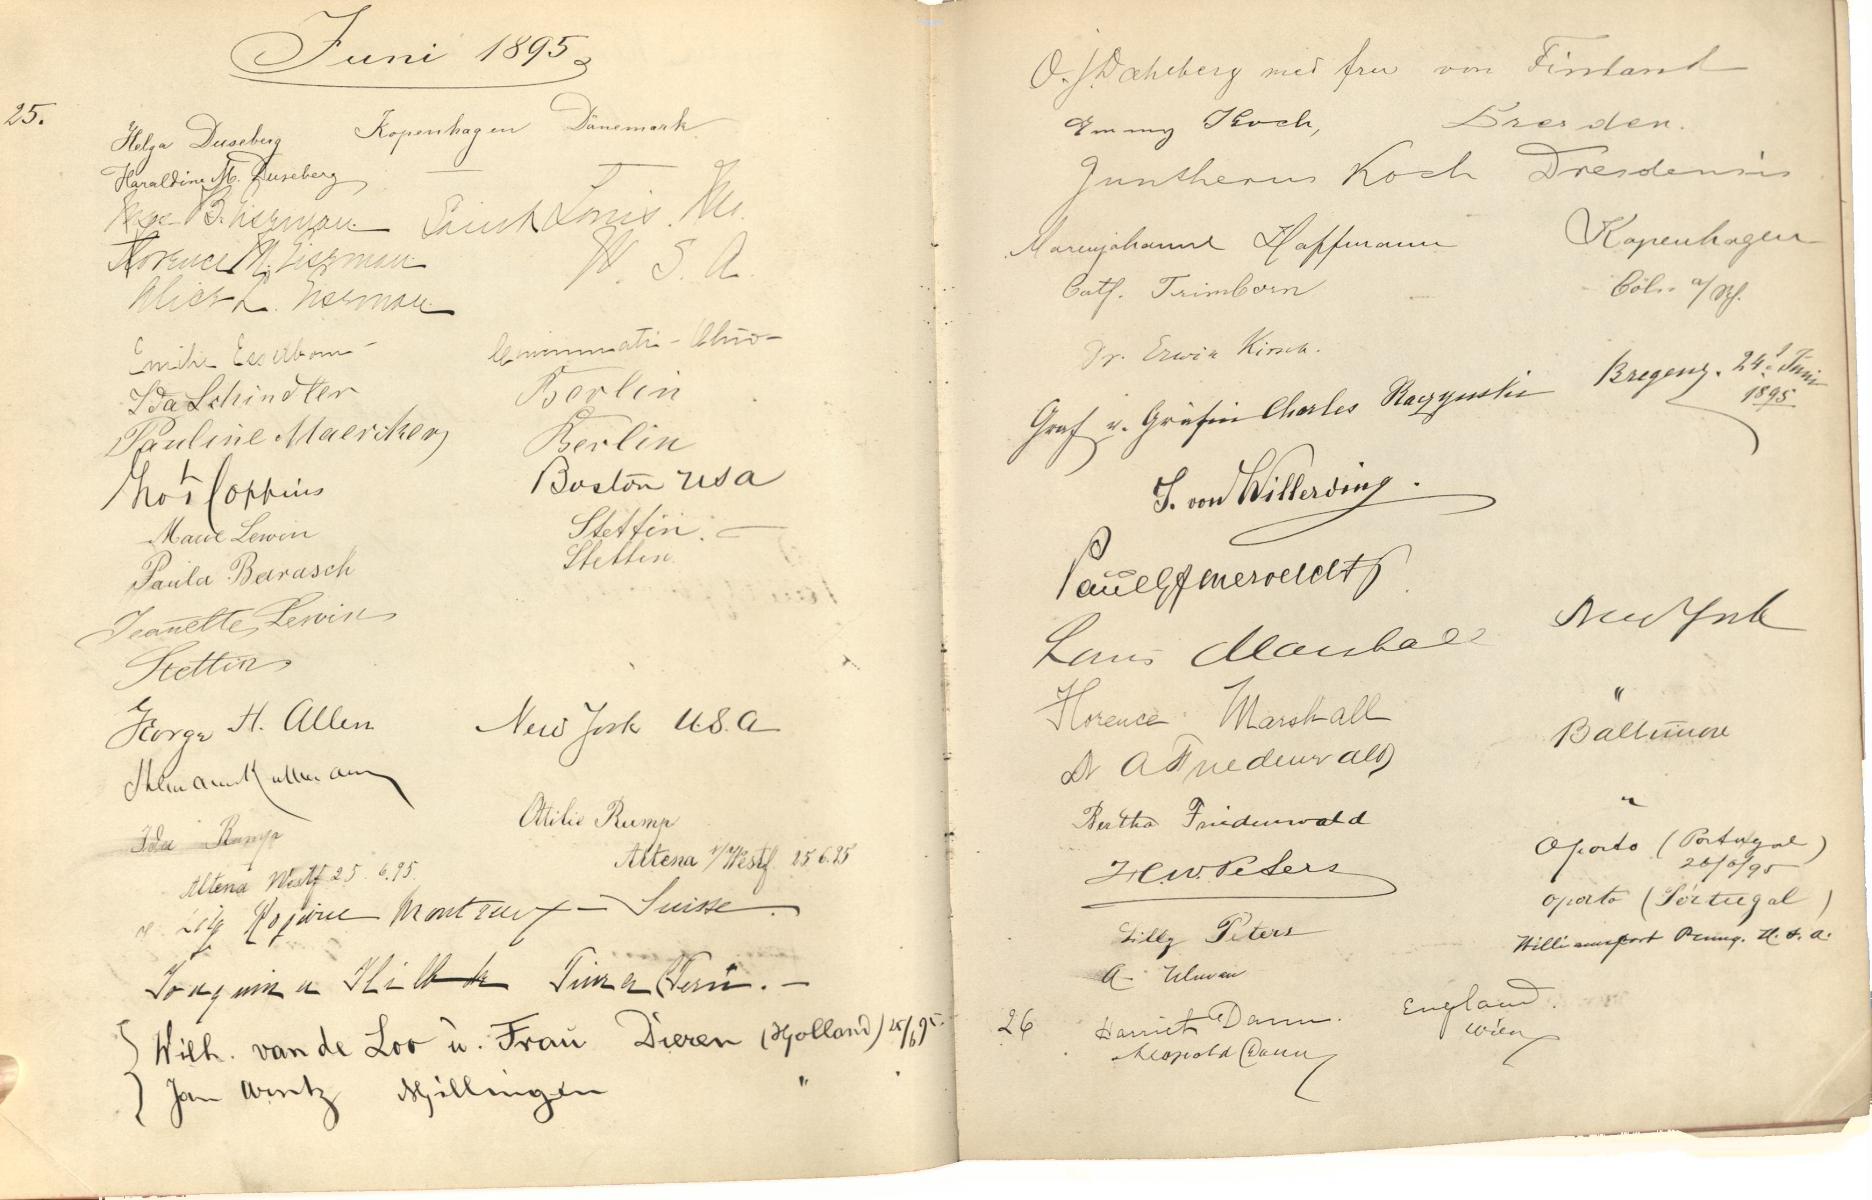 Juni 1895
25.
Helga Duseberg Kopenhagen Dänemark
Haraldine M. Duseberg —
B. Eiserman Saint Louis. Mo.
Florence M. Eiserman U. S. A.
Alice L. Eiserman
Emilie Cincinnati - Ohio -
Ida Schindler Berlin
Pauline Maercker Berlin
Thos Coppins Boston USA
Marie Lewin Stettin. —
Paula Barasch Stettin
Jeanette Lewin
Stettin
George H. Allen New York U.S.A
Ida Rump Ottilie Rump
Altena Westf 25. 6. 95. Altena i/Westf 25 6. 95
Montreux — Suisse.
Joaquina Lima (Perú. —
Wilh. van de Loo u. Frau Dieren (Holland) 25/6 95.
Jan Wentz Millingen "
O. J. Dahlberg med fru von Finland
Emmy Koch, Dresden.
Guntherus Koch Dresdensis
Marenjohanne Hoffmann Kopenhagen
Cath. Trimborn Cöln a/Rh.
Dr. Erwin Kirsch.
Graf u. Gräfin Charles Raczynski Bregenz. 24. Juni
1895
J. von Willerding.
Louis Marshall New York
Florence Marshall "
Dr A Friedenwald Baltimore
Bertha Friedenwald "
H. W. Peters Oporto (Portugal)
Lilly Peters Oporto (Portugal)
A. Ulman Williamsport Penna. U. S. A.
26 Harriet Damm. England.
Leopold Damm Wien